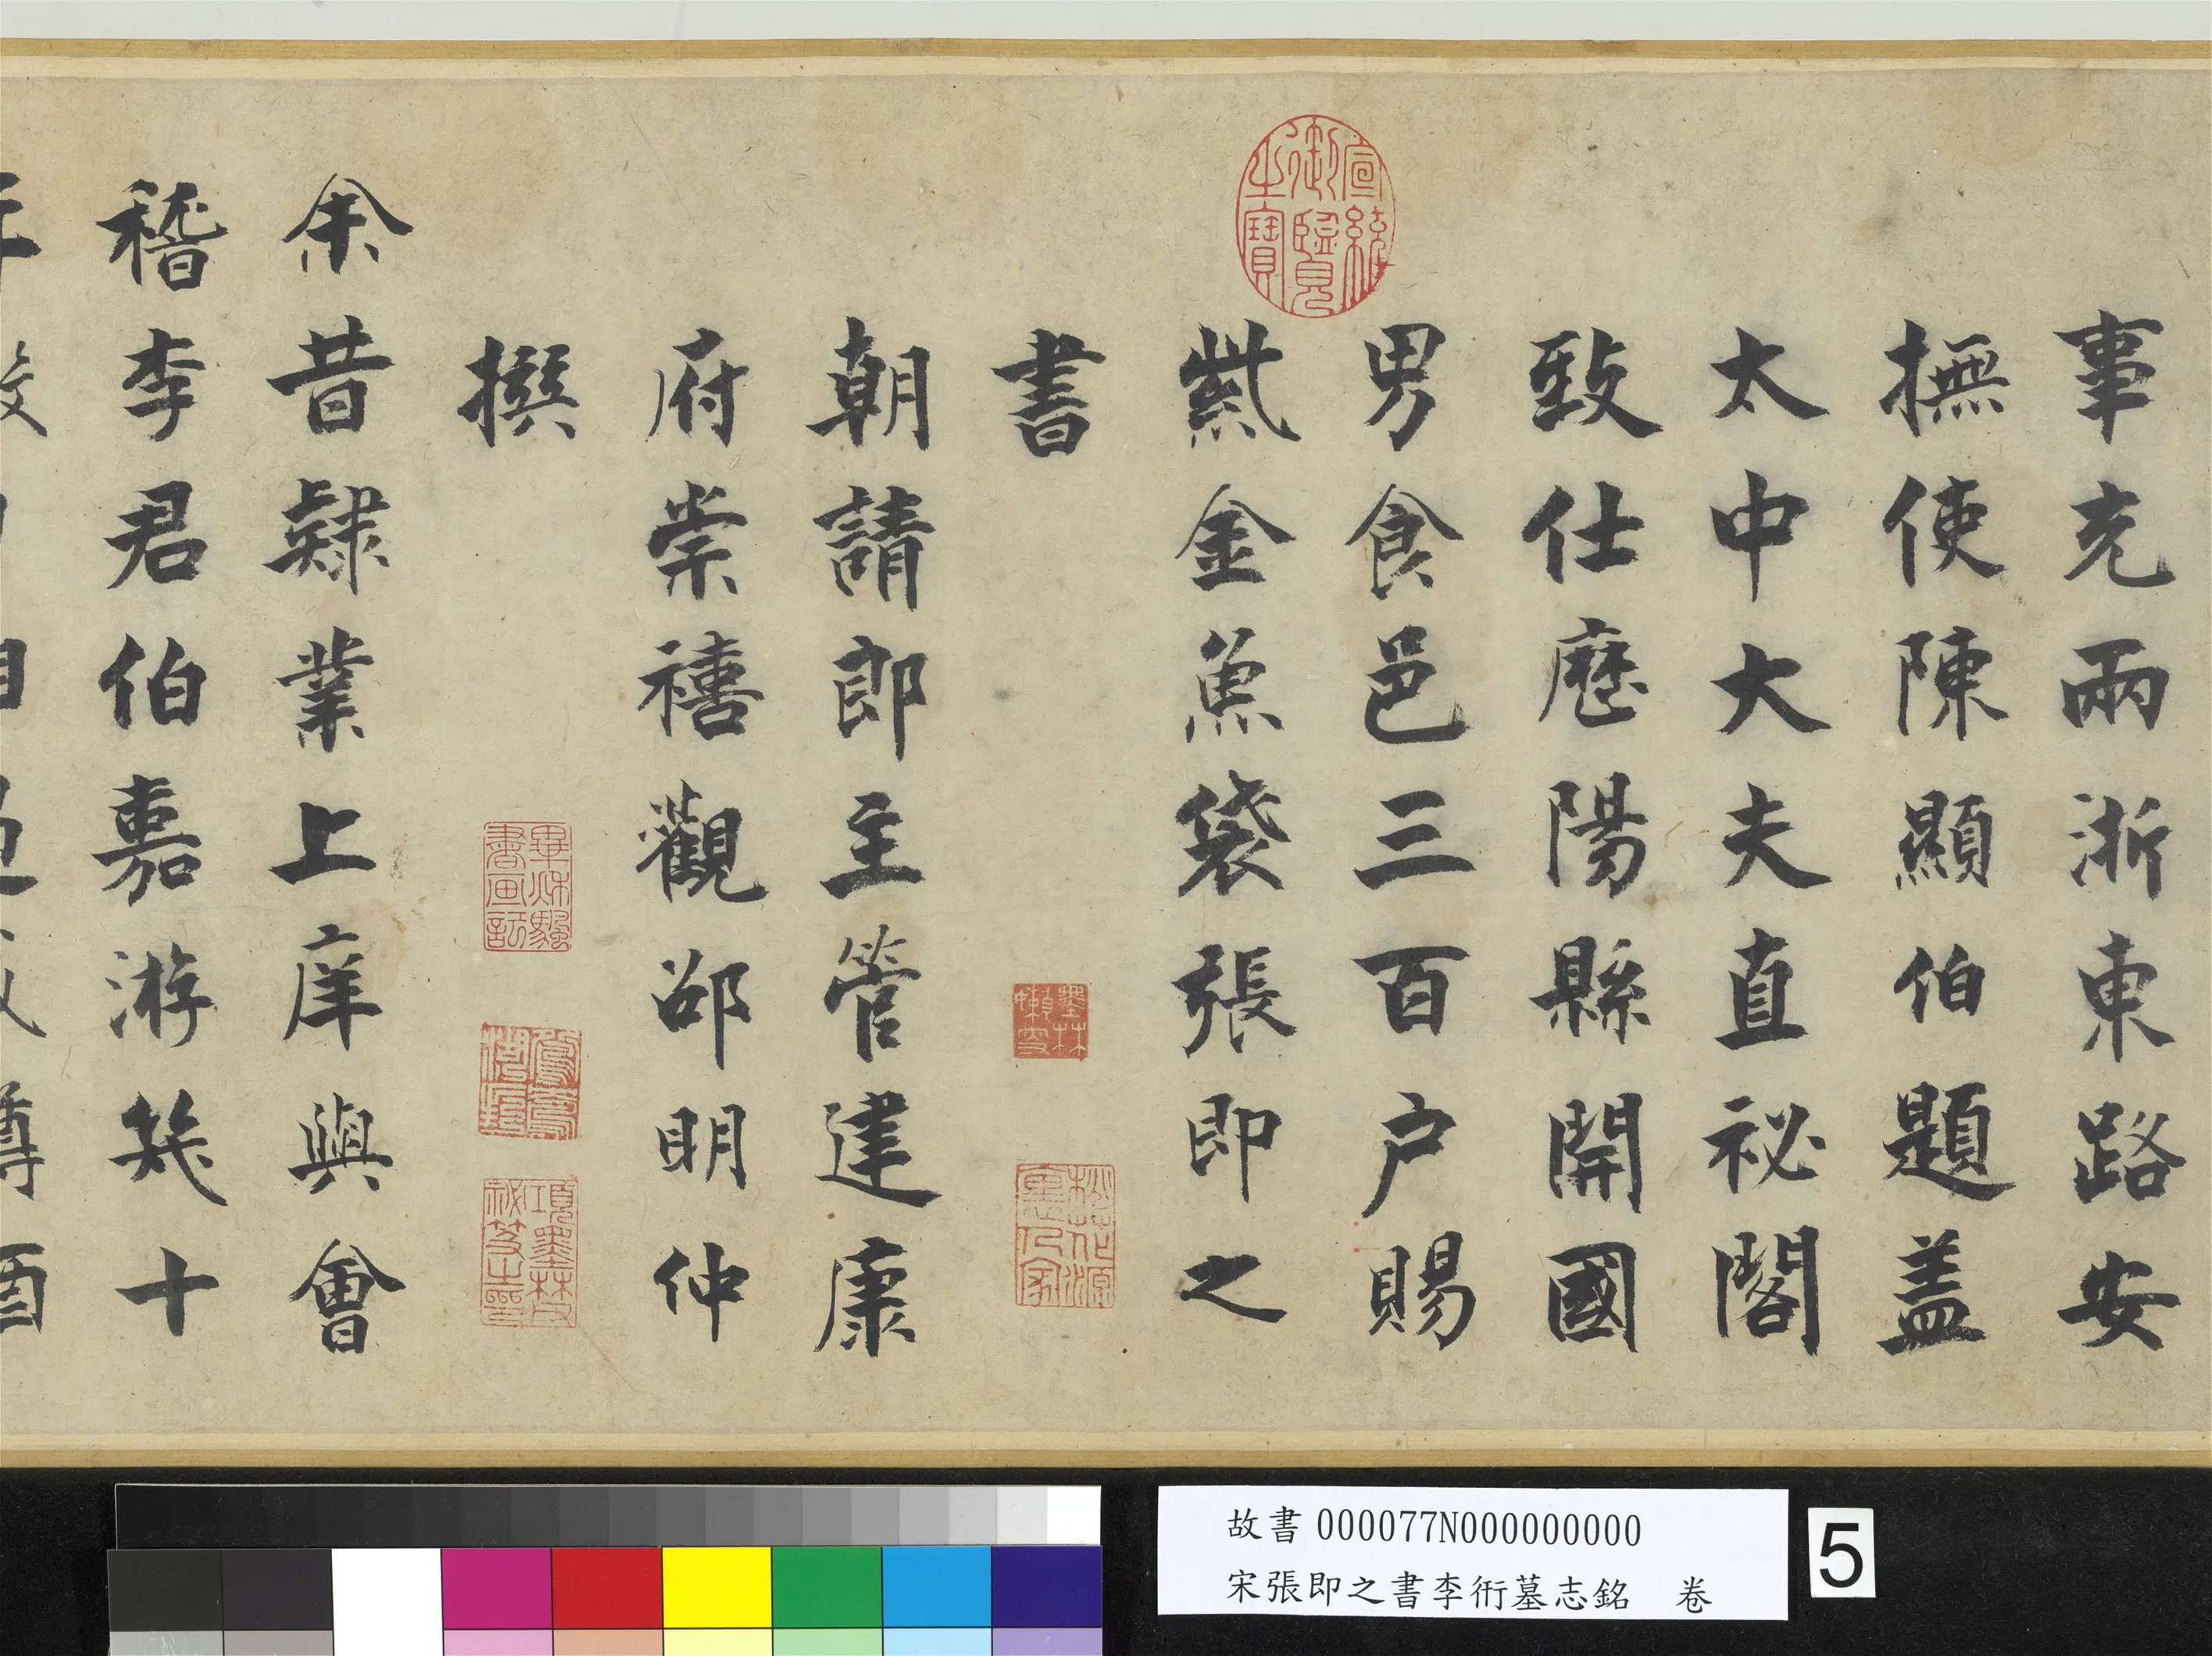 事充兩浙東路安
撫使陳顯伯題盖
太中大夫直祕閣
致仕歷陽縣開國
男食邑三百户賜
紫金魚袋張即之
書
朝請郎主管建康
府崇禧觀邵明仲
撰
余昔隸業上庠與會
稽李君伯嘉游幾十
宣統御覽之寶
墨林嬾叟
桃花源裏人家
項墨林父祕笈之印
故書 000077N000000000
宋張即之書李衎墓志銘 卷
5